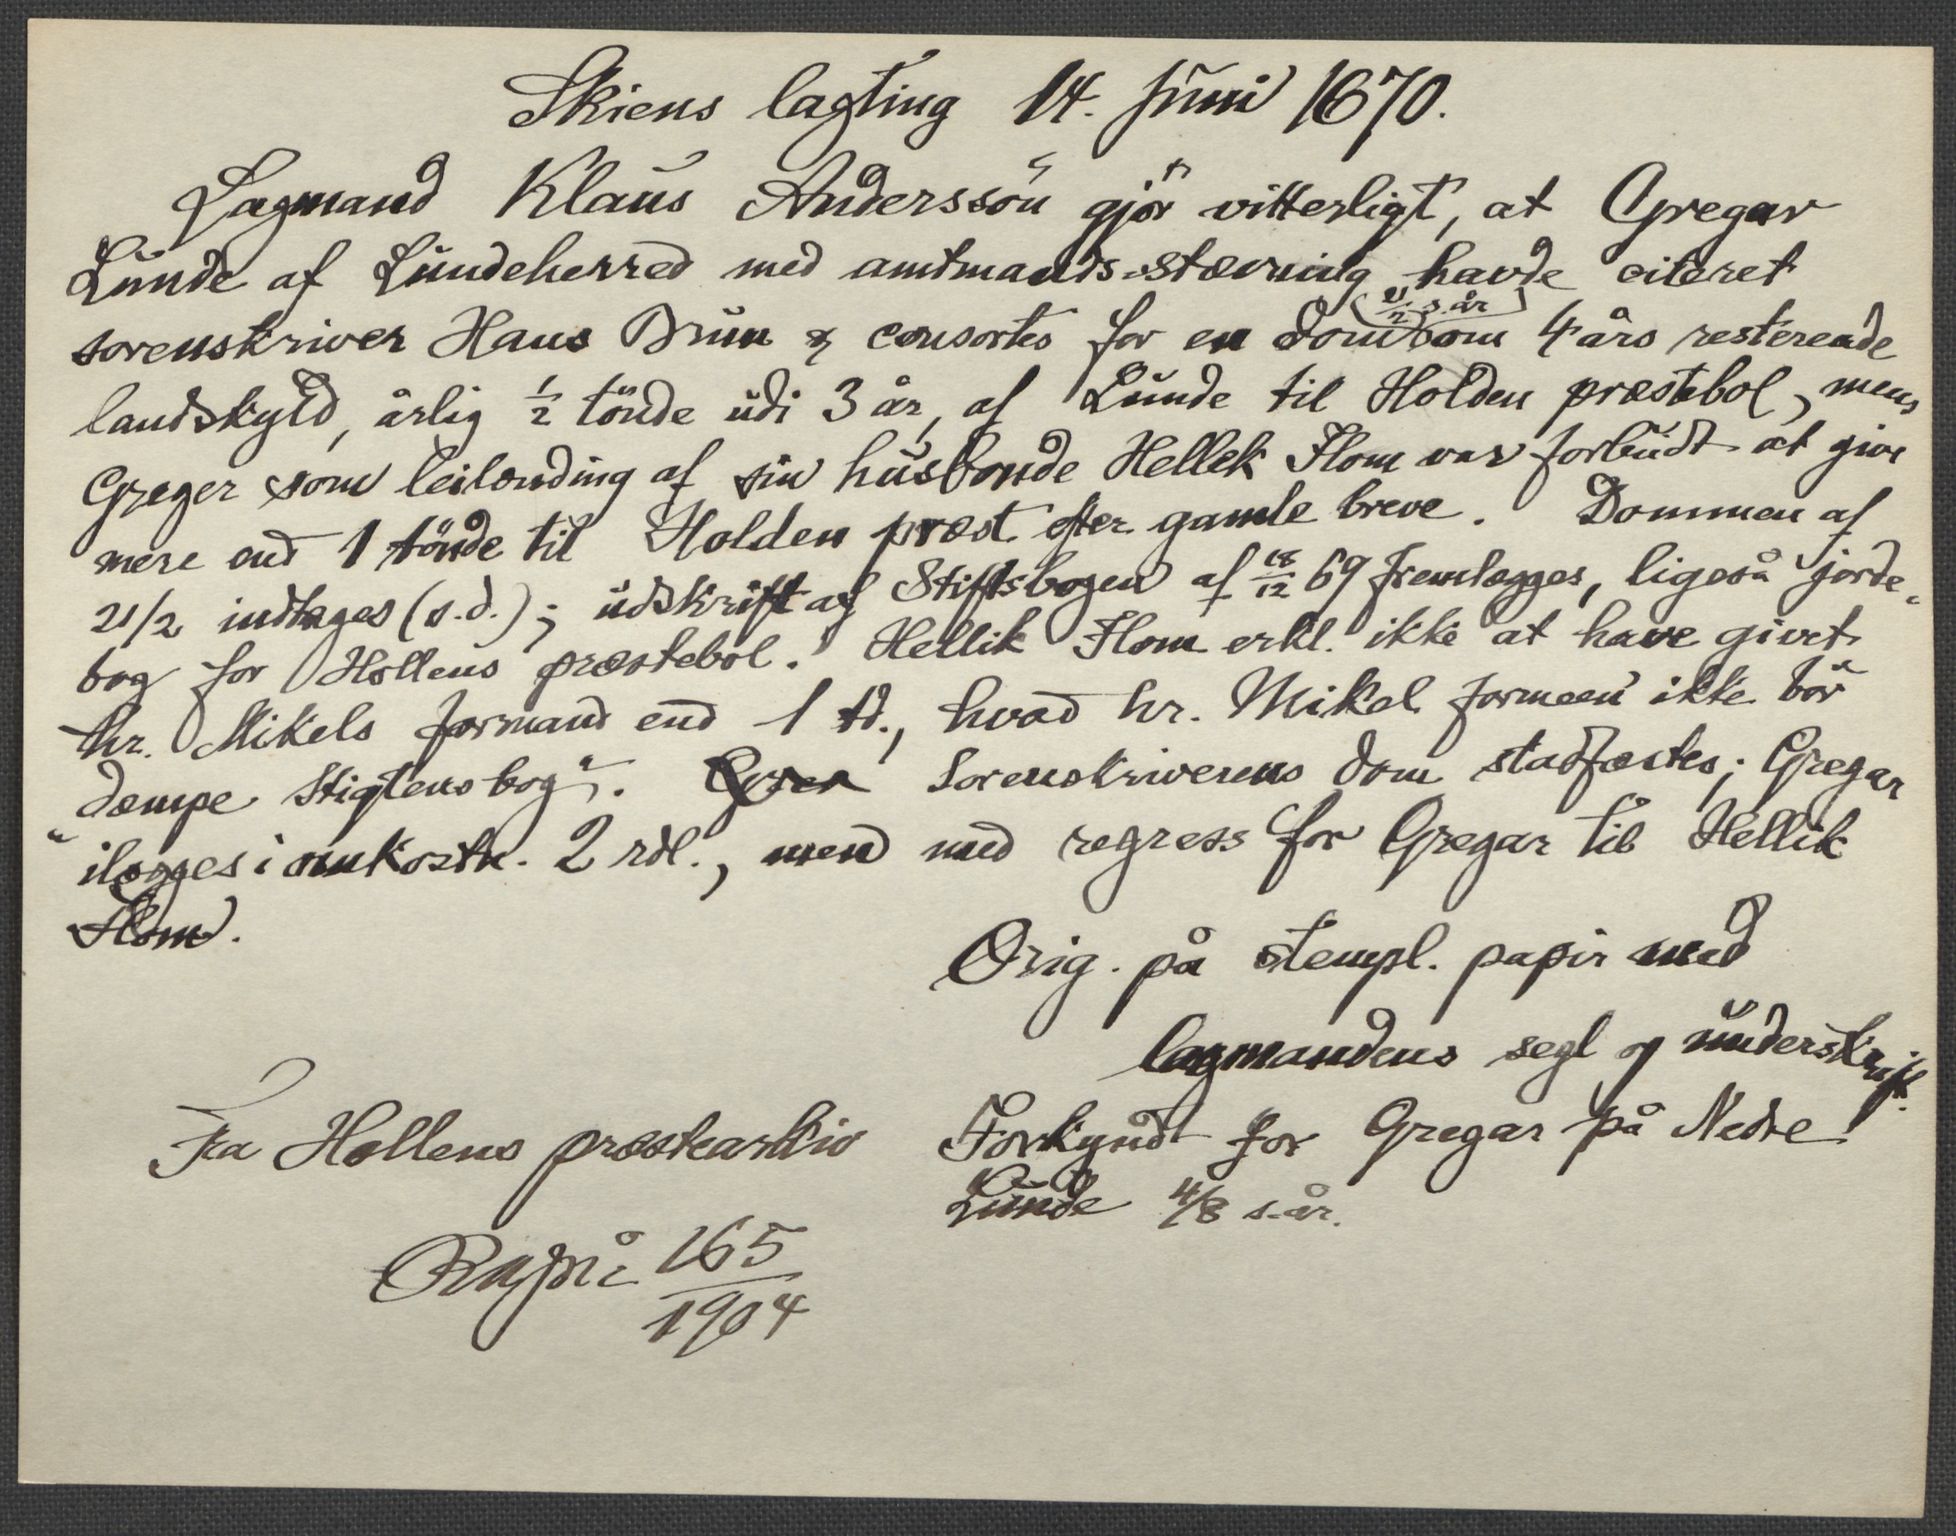 Skiens lagting 14. juni 1670.
Lagmand Klaus Anderssön gjör vitterligt, at Gregar
Lunde af Lundeherred med amtmands-stævning havde citeret
sorenskriver Hans Brun & consortes for en dom (21/2 s. år) om 4 års resterende
landskyld, årlig ½ tönde udi 3 år, af Lunde til Holden præstebol, mens
Greger som leilænding af sin husbonde Hellek Flom var forbudt at give
mere end 1 tönde til Holden præst efter gamle breve. Dommen af
21/2 indtages (s.d.); udskrift af Stiftsbogen af 18/12 69 fremlægges, ligeså jorde-
bog for Hollens præstebol. Hellik Flom erkl. ikke at have givet
hr. Mikels formand end 1 td., hvad hr. Mikel formeen ikke bör
"dæmpe Stigtens bog". Sorenskriverens dom stadfæstes; Gregar
ilægges i omkostn. 2 rdl., men med regress for Gregar til Hellik
Flom.
Orig. på stempl. papir med
lagmandens segl og underskrift.
Fra Hollens præstearkiv
Forkyndt for Gregar på Nedre
Lunde 4/8 s. år.
165
1904